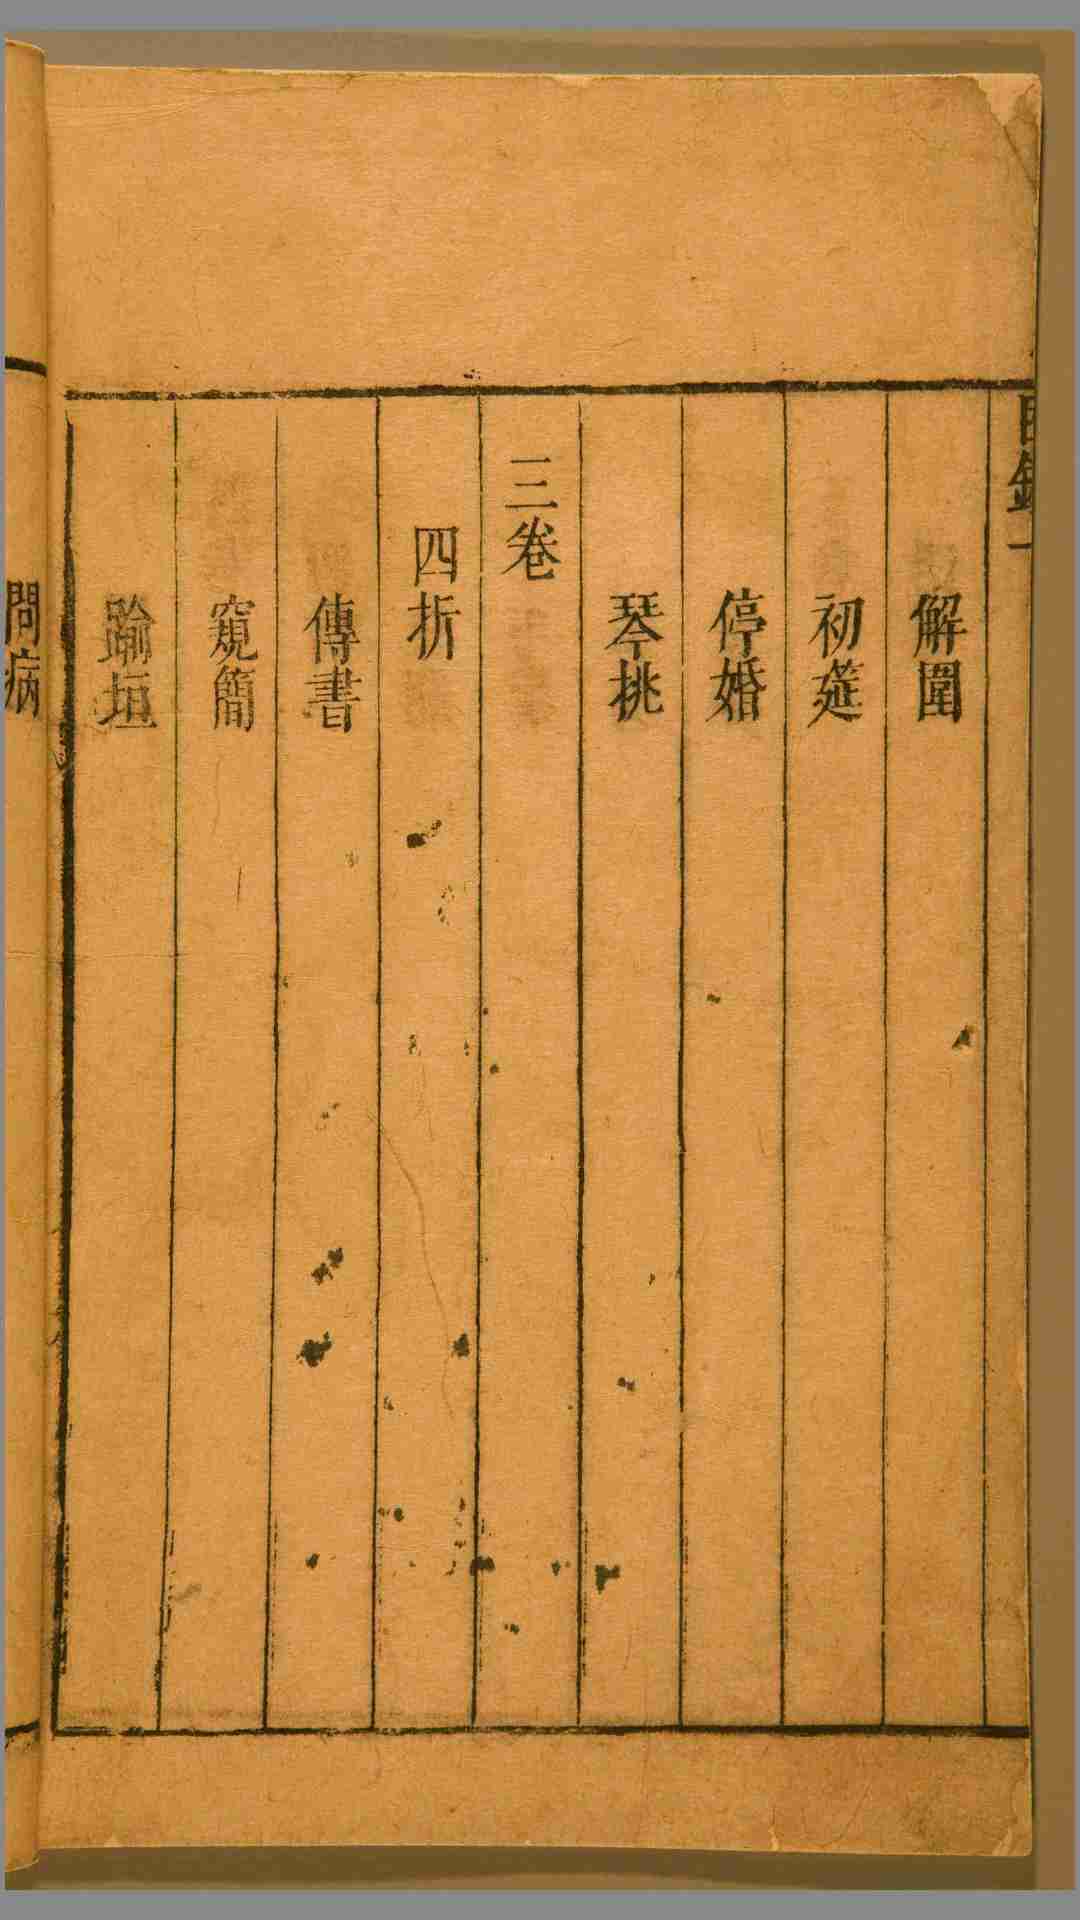 目錄一
解圍
初筵
停婚
琴挑
三卷
四折
傳書
窺簡
踰垣
問病